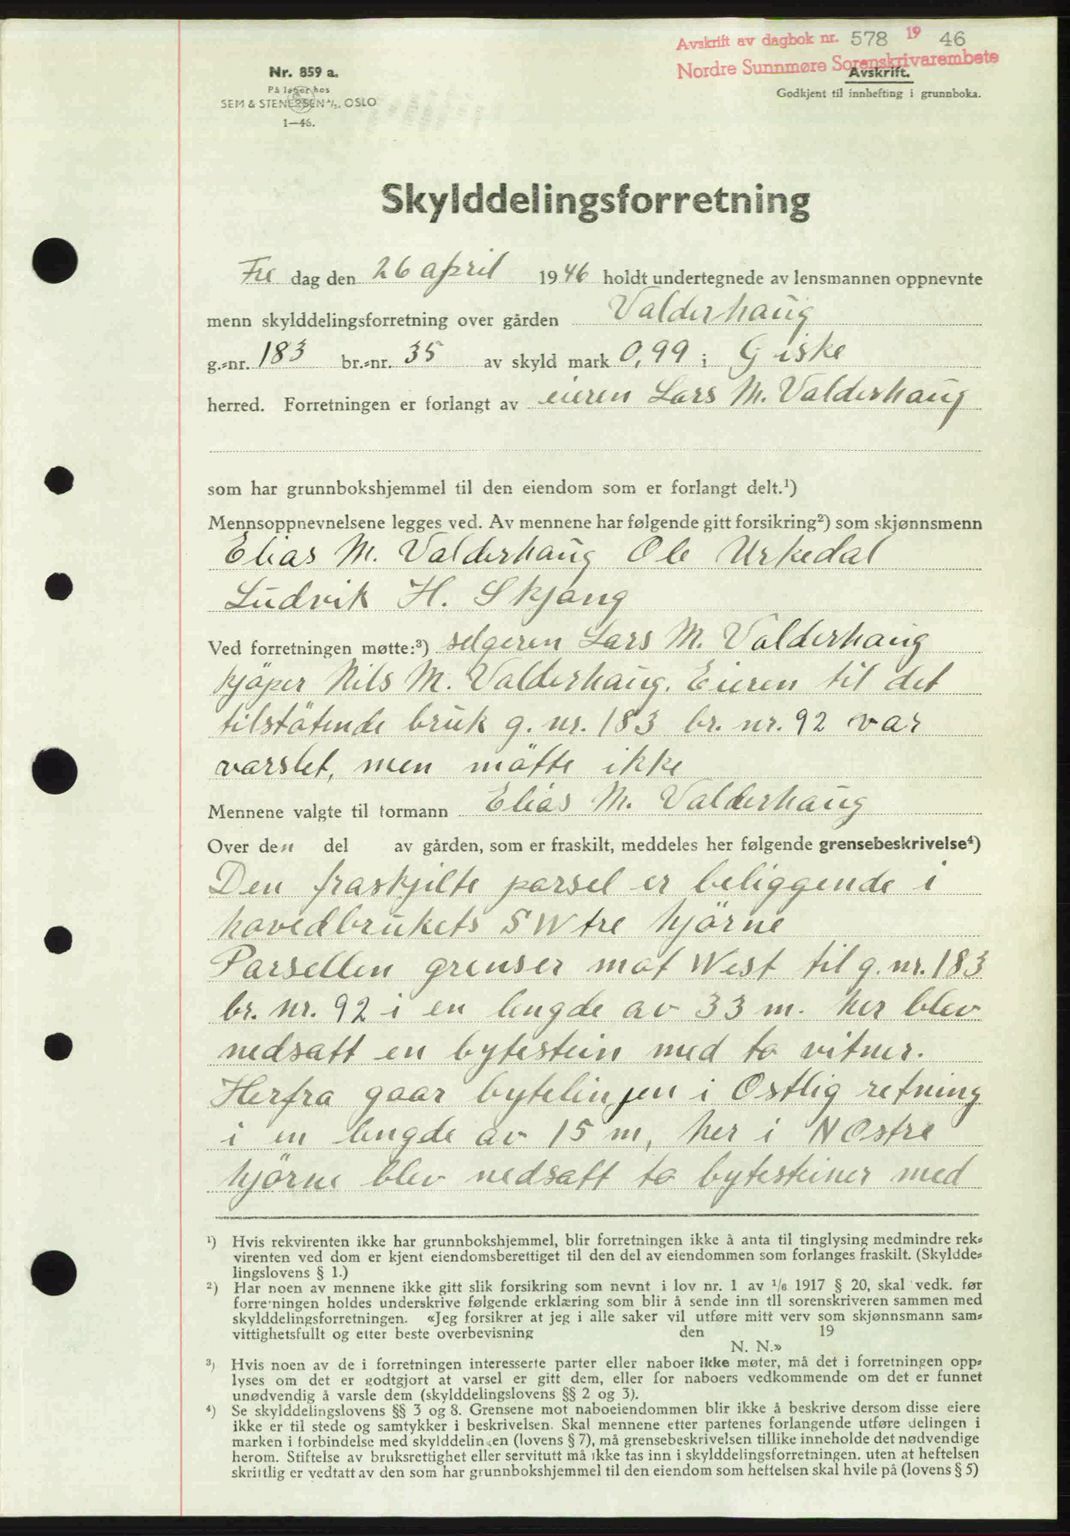 Avskrift av dagbok nr. 578 19 46
Nordre Sunnmøre Sorenskrivarembete
Nr. 859 a.
På lager hos
SEM & STENERSEN A/S, OSLO
1—46.
Avskrift.
Godkjent til innhefting i grunnboka.
Skylddelingsforretning
Fre dag den 26 april 1946 holdt undertegnede av lensmannen oppnevnte
menn skylddelingsforretning over gården Valderhaug
g.-nr. 183 br.-nr. 35 av skyld mark 0,99 i Giske
herred. Forretningen er forlangt av eieren Lars M. Valderhaug
som har grunnbokshjemmel til den eiendom som er forlangt delt.¹)
Mennsoppnevnelsene legges ved. Av mennene har følgende gitt forsikring²) som skjønnsmenn
Elias M. Valderhaug Ole Urkedal
Ludvik H. Skjong
Ved forretningen møtte:³) selgeren Lars M. Valderhaug
kjöper Nils M. Valderhaug. Eieren til det
tilstötende bruk g. nr. 183 br. nr. 92 var
varslet, men mötte ikke
Mennene valgte til formann Elias M. Valderhaug
Over den del av gården, som er fraskilt, meddeles her følgende grensebeskrivelse⁴)
Den fraskjilte parsel er beliggende i
hovedbrukets SWtre hjörne
Parsellen grenser mot West til g. nr. 183
br. nr. 92 i en lengde av 33 m. her blev
nedsatt en bytestein med to vitner.
Herfra gaar bytelinjen i Ostlig retning
i en lengde av 15 m, her i NOstre
hjörne blev nedsatt to bytesteiner med
¹) Hvis rekvirenten ikke har grunnbokshjemmel, blir forretningen ikke å anta til tinglysing medmindre rek-
virenten ved dom er kjent eiendomsberettiget til den del av eiendommen som forlanges fraskilt. (Skyldde-
lingslovens § 1.)
²) Har noen av mennene ikke gitt slik forsikring som nevnt i lov nr. 1 av 1/6 1917 § 20, skal vedk. før
forretningen holdes underskrive følgende erklæring som blir å sende inn til sorenskriveren sammen med
skylddelingsforretningen. «Jeg forsikrer at jeg i alle saker vil utføre mitt verv som skjønnsmann sam-
vittighetsfullt og etter beste overbevisning den 19
N. N.»
³) Hvis noen av de i forretningen interesserte parter eller naboer ikke møter, må det i forretningen opp-
lyses om det er godtgjort at varsel er gitt dem, eller for naboers vedkommende om det er funnet
unødvendig å varsle dem (skylddelingslovens §§ 2 og 3).
⁴) Se skylddelingslovens §§ 3 og 8. Grensene mot naboeiendommen blir ikke å beskrive dersom disse eiere
ikke er til stede og samtykker i beskrivelsen. Skal mennene etter partenes forlangende utføre delingen i
marken i forbindelse med skylddelingen (lovens § 7), må grensebeskrivelsen tillike inneholde det nødvendige
herom. Stiftelse av bruksrettighet eller servitutt må ikke tas inn i skylddelingsforretningen, uten at heftelsen
skriftlig er vedtatt av den som har grunnbokshjemmel til den eiendom som heftelsen skal hvile på (lovens § 5)